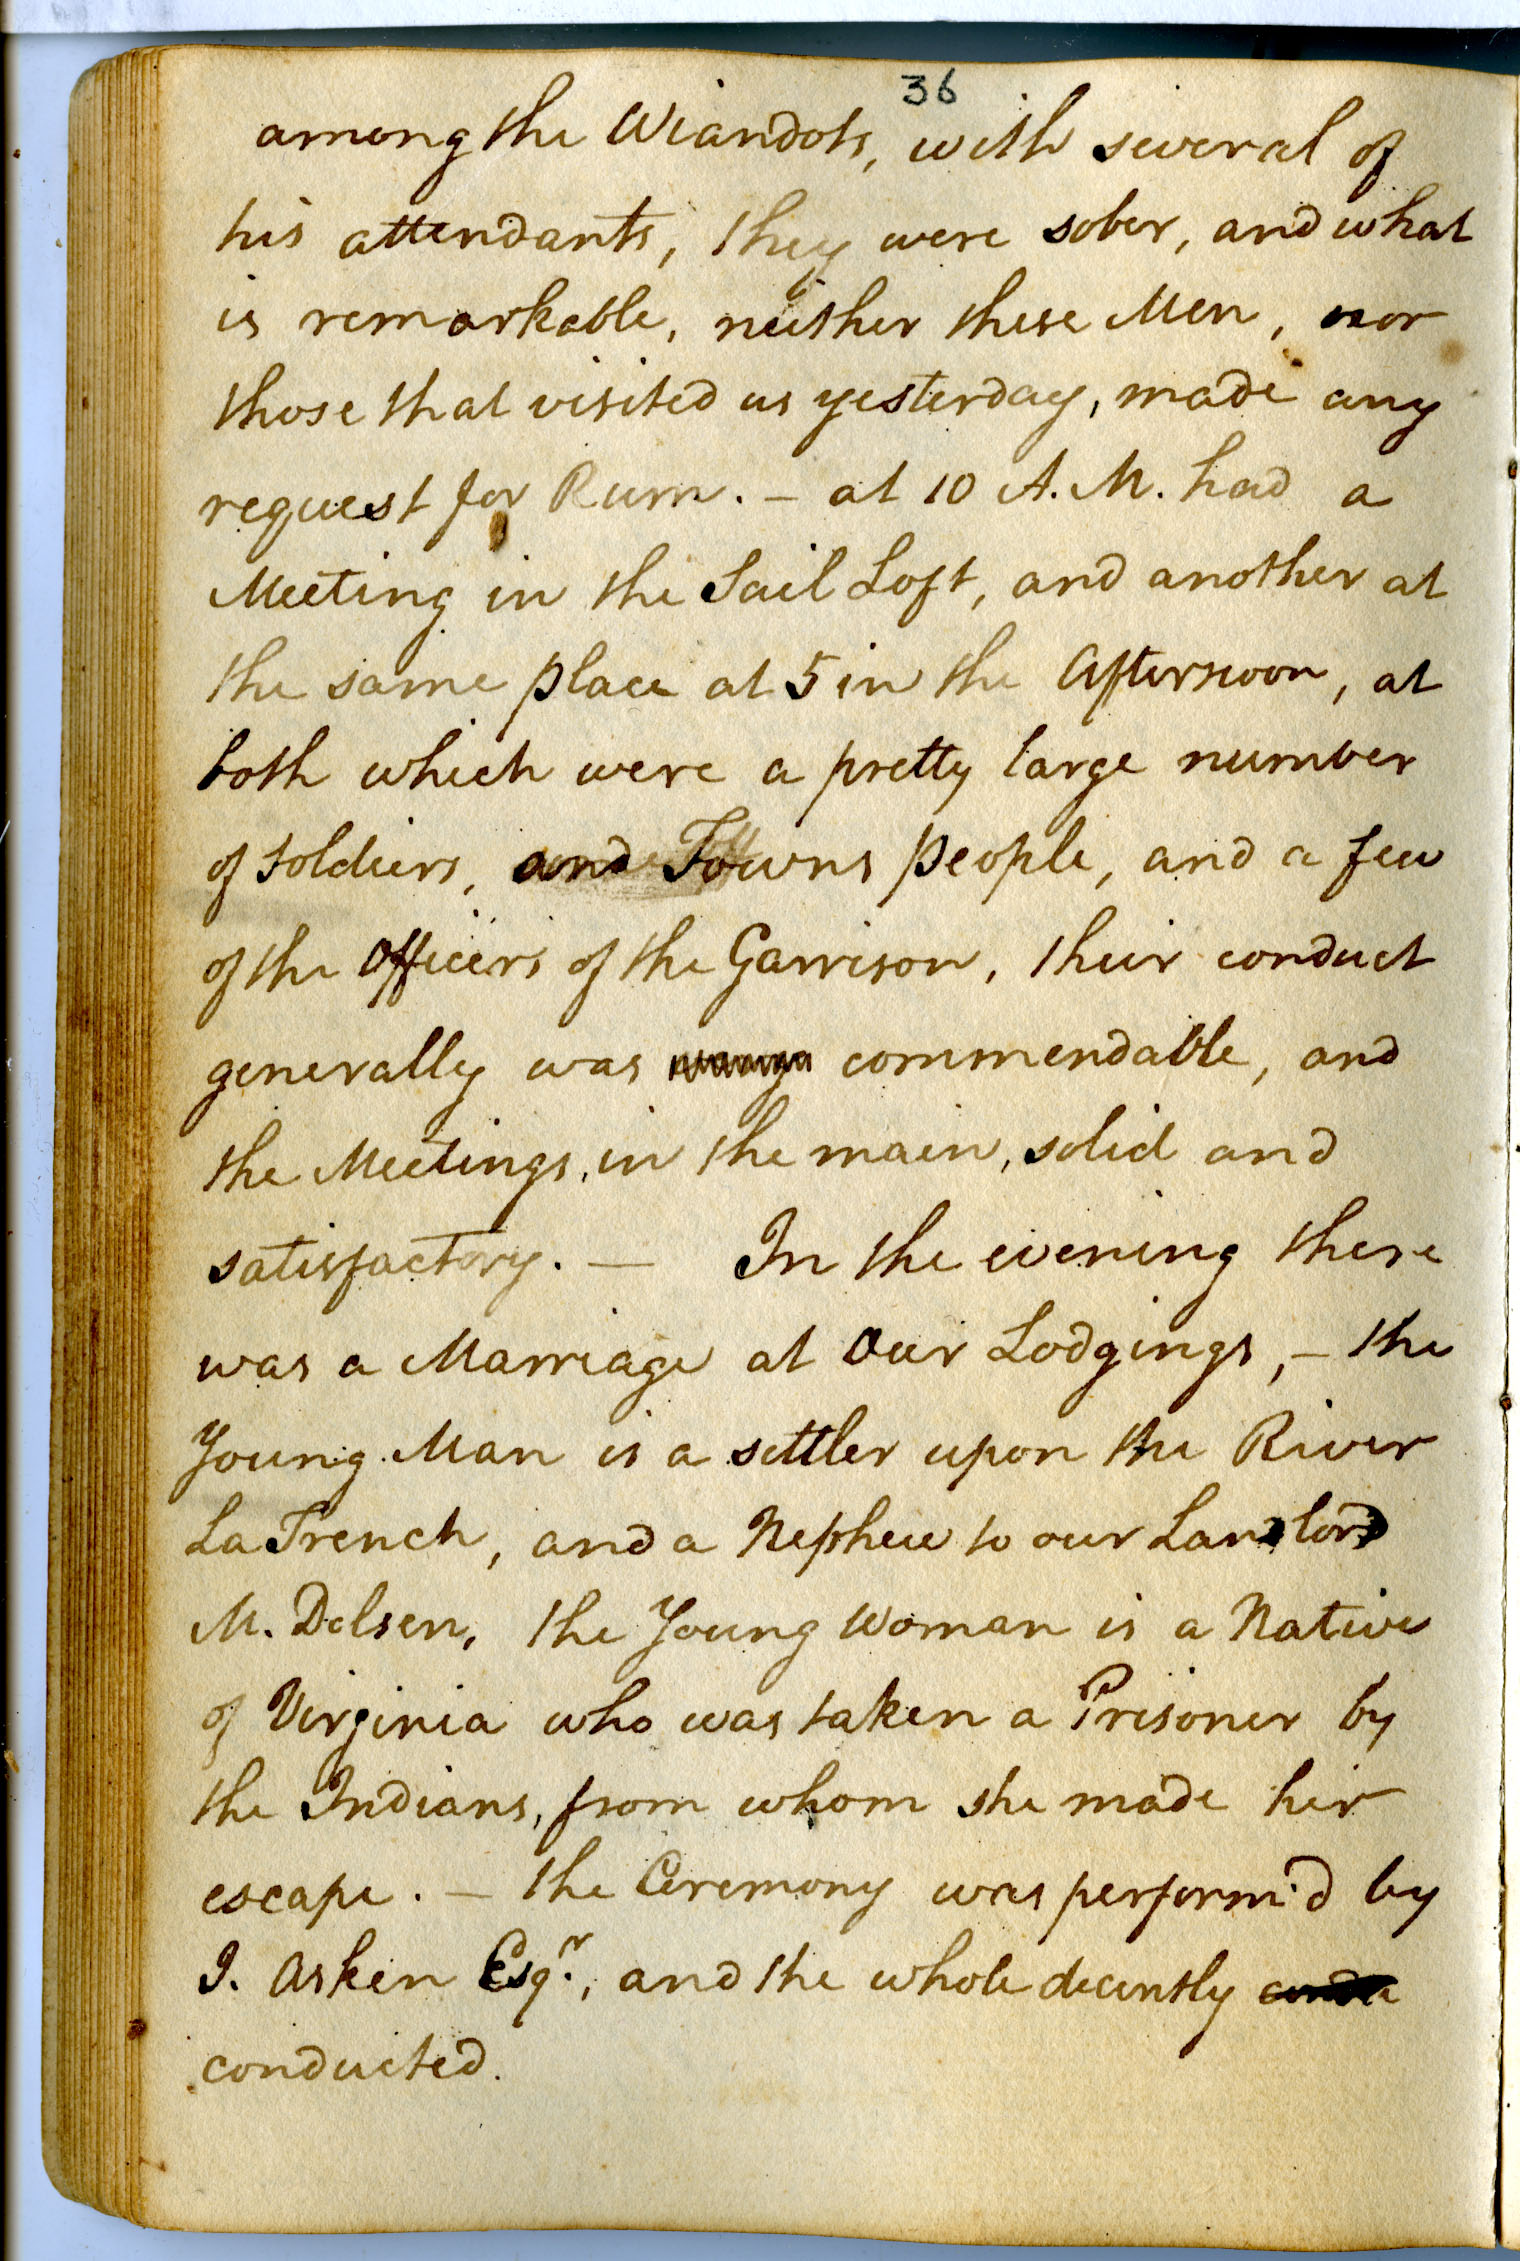 36
among the Wiandots, with several of
his attendants, they were sober, and what
is remarkable, neither these Men, nor
those that visited us yesterday, made any
request for Rum. – at 10 A.M. had a
Meeting in the Sail Loft, and another at
the same place at 5 in the Afternoon, at
both which were a pretty large number
of soldiers, and Towns people, and a few
of the Officers of the Garrison, their conduct
generally was commendable, and
the Meetings, in the main, solid and
satisfactory. — In the evening there
was a Marriage at Our Lodgings, – the
Young Man is a settler upon the River
La Trench, and a Nephew to our Landlord
M. Dolsen, the Young Woman is a Native
of Virginia who was taken a Prisoner by
the Indians, from whom she made her
escape. – the Ceremony was perform'd by
J. Asken Esqr., and the whole decently
conducted.